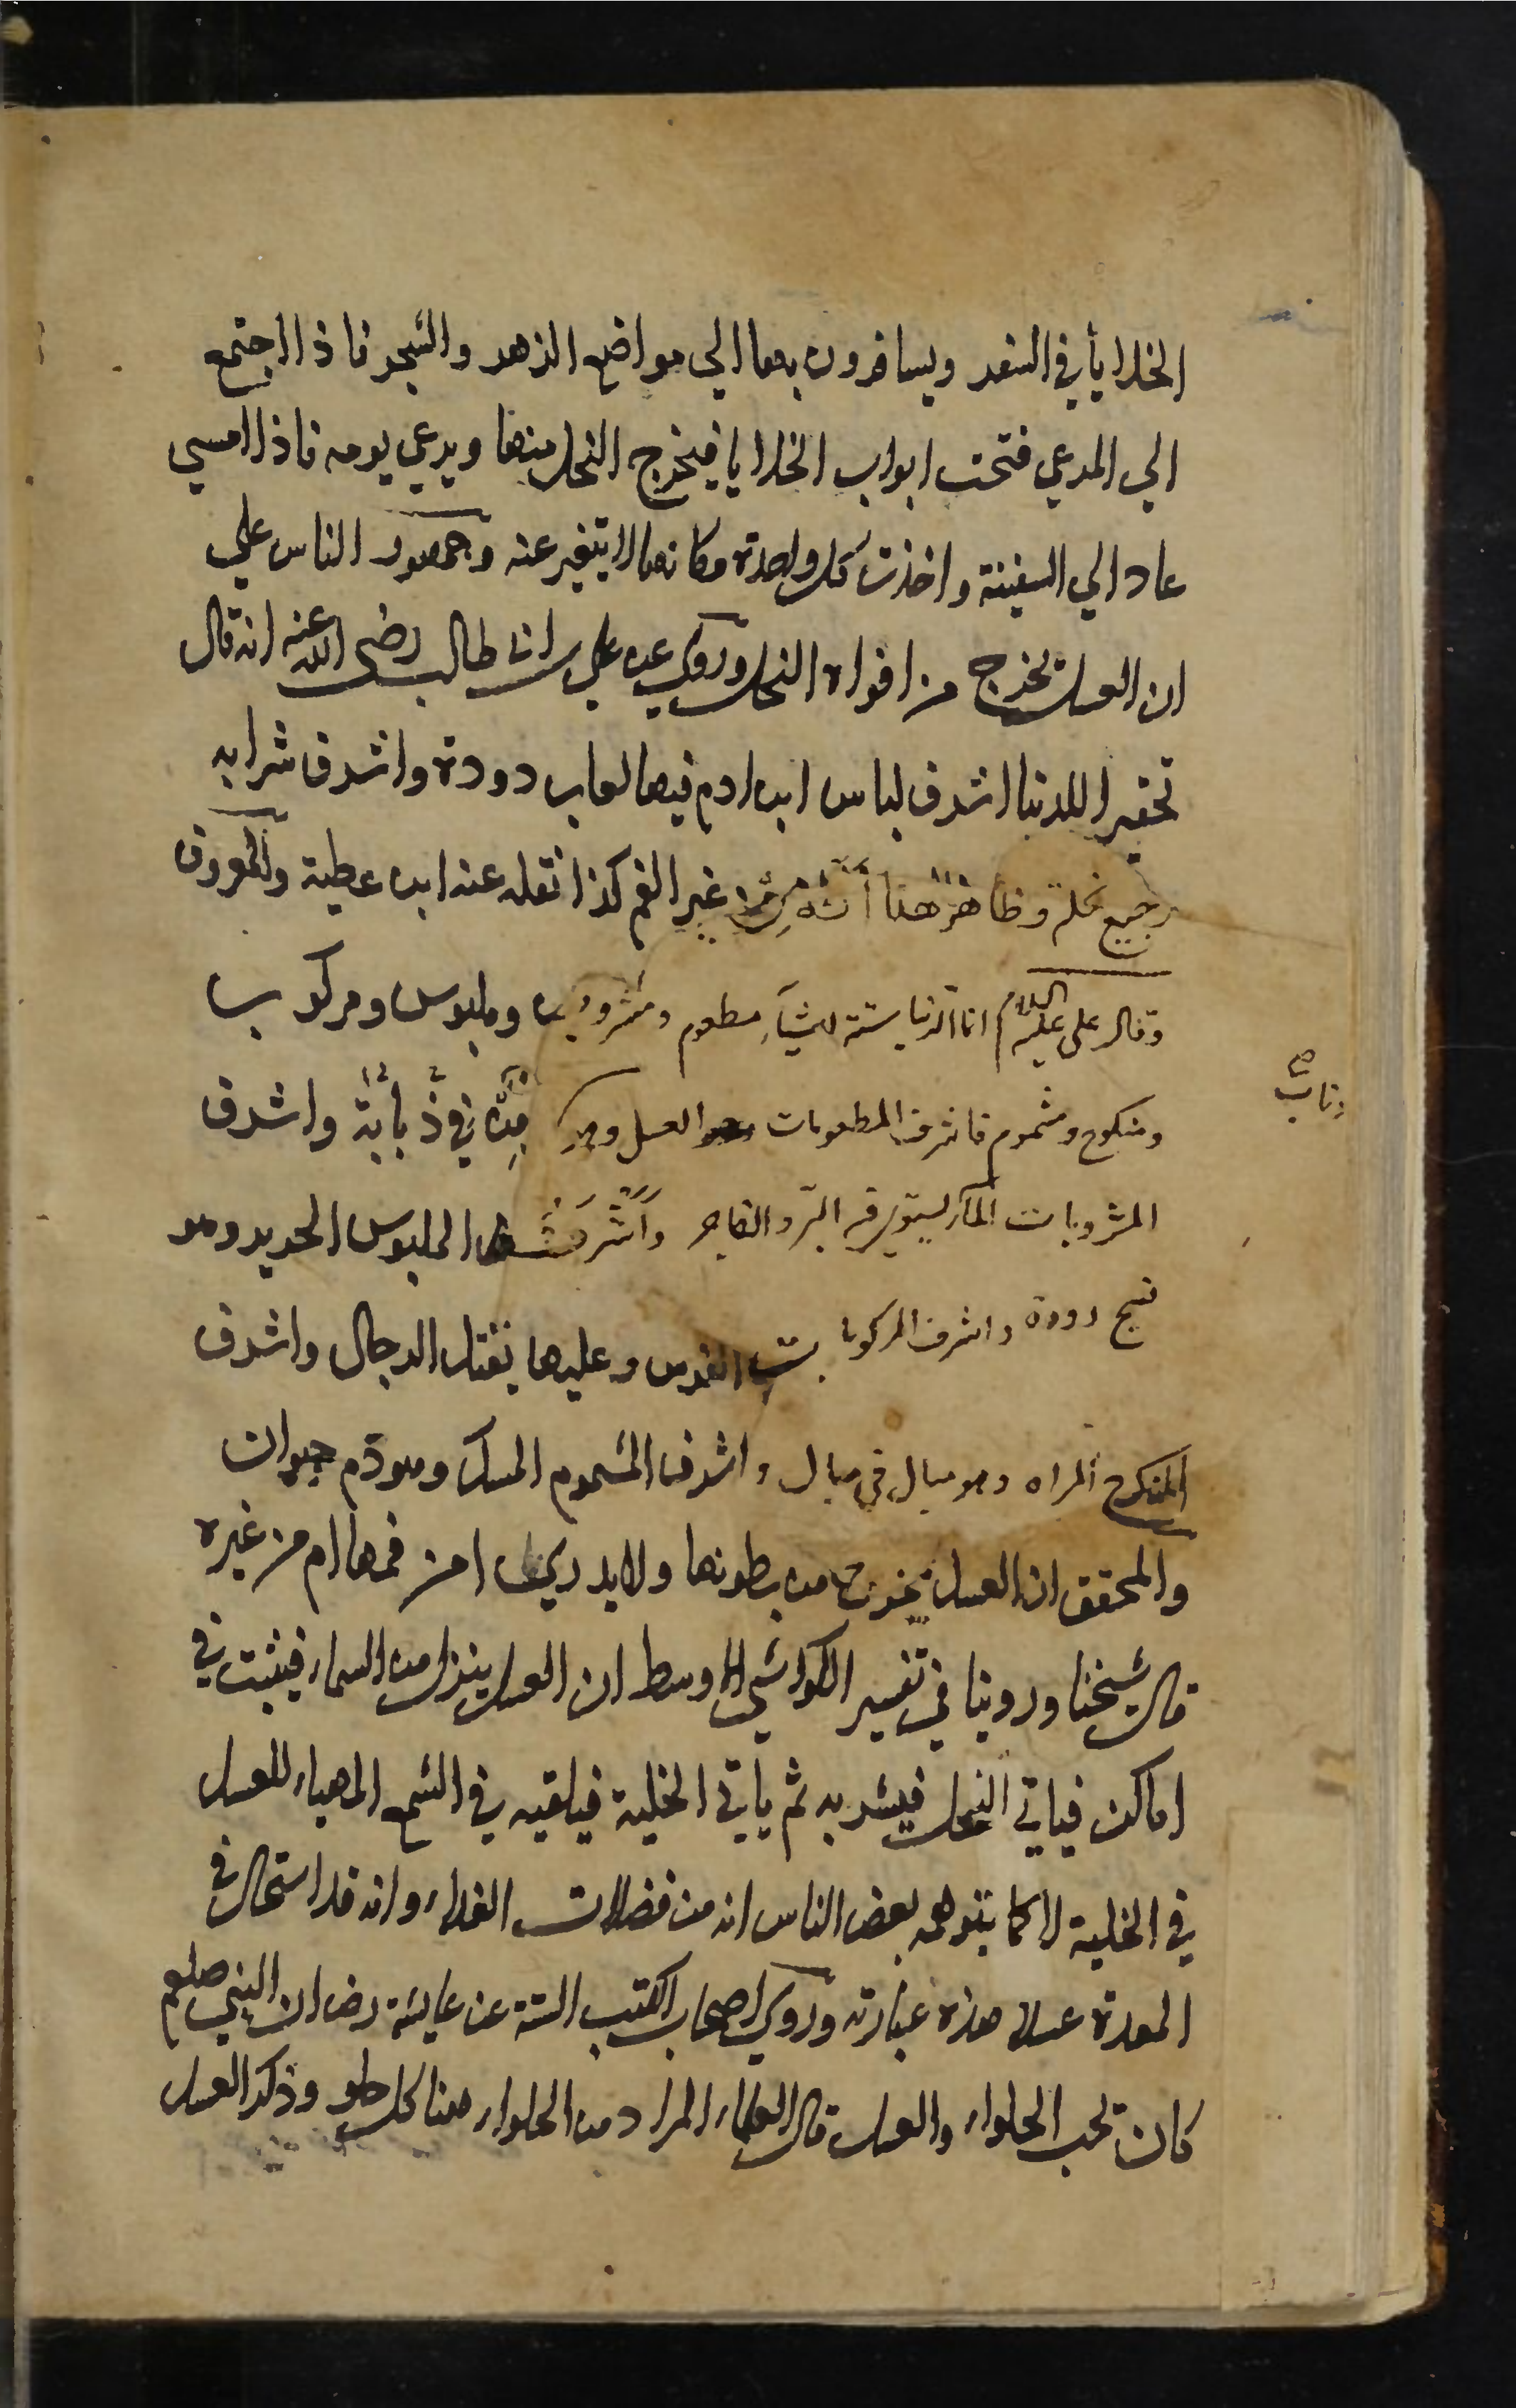 الخلايا في السفن ويسافرون بها الي مواضع الزهر والشجر فاذا اجتمع
الي المرعي فتحت ابواب الخلايا فيخرج النحل منها ويرعي يومه فاذا امسي
عاد الي السفينة واخذت كل واحدة مكانها لا يتغير عنه وجمهور الناس علي
ان العسل يخرج من افواه النحل وروي عن علي بن ابي طالب رضي الله عنه انه قال
تحقيرا للدنيا اشرف لباس ابن ادم فيها لعاب دودة واشرف شرابه
رجيع نحلة وظاهر هذا أنه من غير الفم كذا نقله عنه ابن عطية والمعروف
وقال علي عليه السلام انما الدنيا ستة اشياء مطعوم ومشروب وملبوس ومركوب
ومنكوح ومشموم فاشرف المطعومات العسل وهو مذقة ذبابة واشرف
ذباب
المشروبات الماء يستوي فيه البر والفاجر وأشرف الملبوس الحرير وهو
نسج دودة واشرف المركوبات الفرس وعليها يقتل الرجال واشرف
المنكوح المراه وهو مبال في مبال واشرف المشموم المسك وهو دم حيوان
والمحقق ان العسل يخرج من بطونها ولا يدري امن فمها ام من غيره
قال شيخنا وروينا في تفسير الكواشي الاوسط ان العسل ينزل من السماء فيثبت في
اماكن فياتي النحل فيشربه ثم ياتي الخلية فيلقيه في الشمع المهياء للعسل
في الخلية لا كما يتوهمه بعض الناس انه من فضلات الغداء وانه قد استحال في
المعدة عسلا هذه عبارته وروي اصحاب الكتب الستة عن عايشة رض ان النبي صلعم
كان يحب الحلواء والعسل قال العلماء المراد من الحلواء هنا كل حلو وذكر العسل